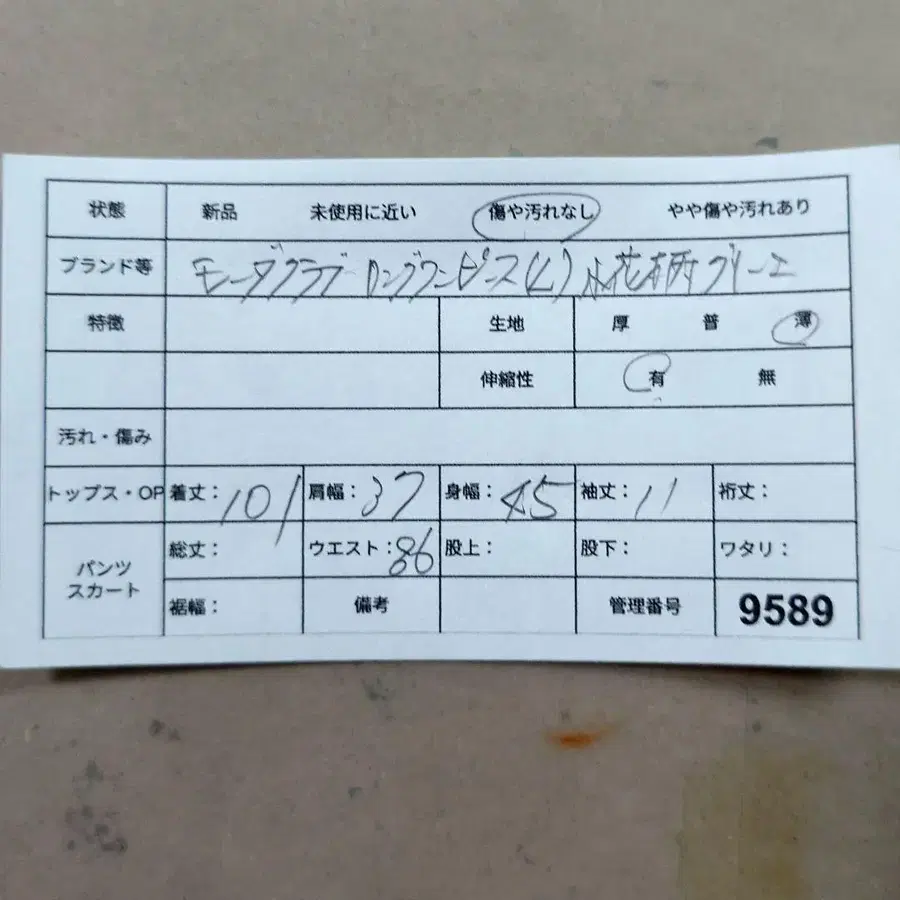 状態 新品 未使用に近い 傷や汚れなし やや傷や汚れあり
ブランド等 モーダクラブ ロングワンピース(L) 小花柄 グリーン
特徴 生地 厚 普 薄
伸縮性 有 無
汚れ・傷み
トップス・OP 着丈: 101 肩幅: 37 身幅: 45 袖丈: 11 裄丈:
パンツ スカート
総丈: ウエスト: 86 股上: 股下: ワタリ:
裾幅: 備考 管理番号 9589